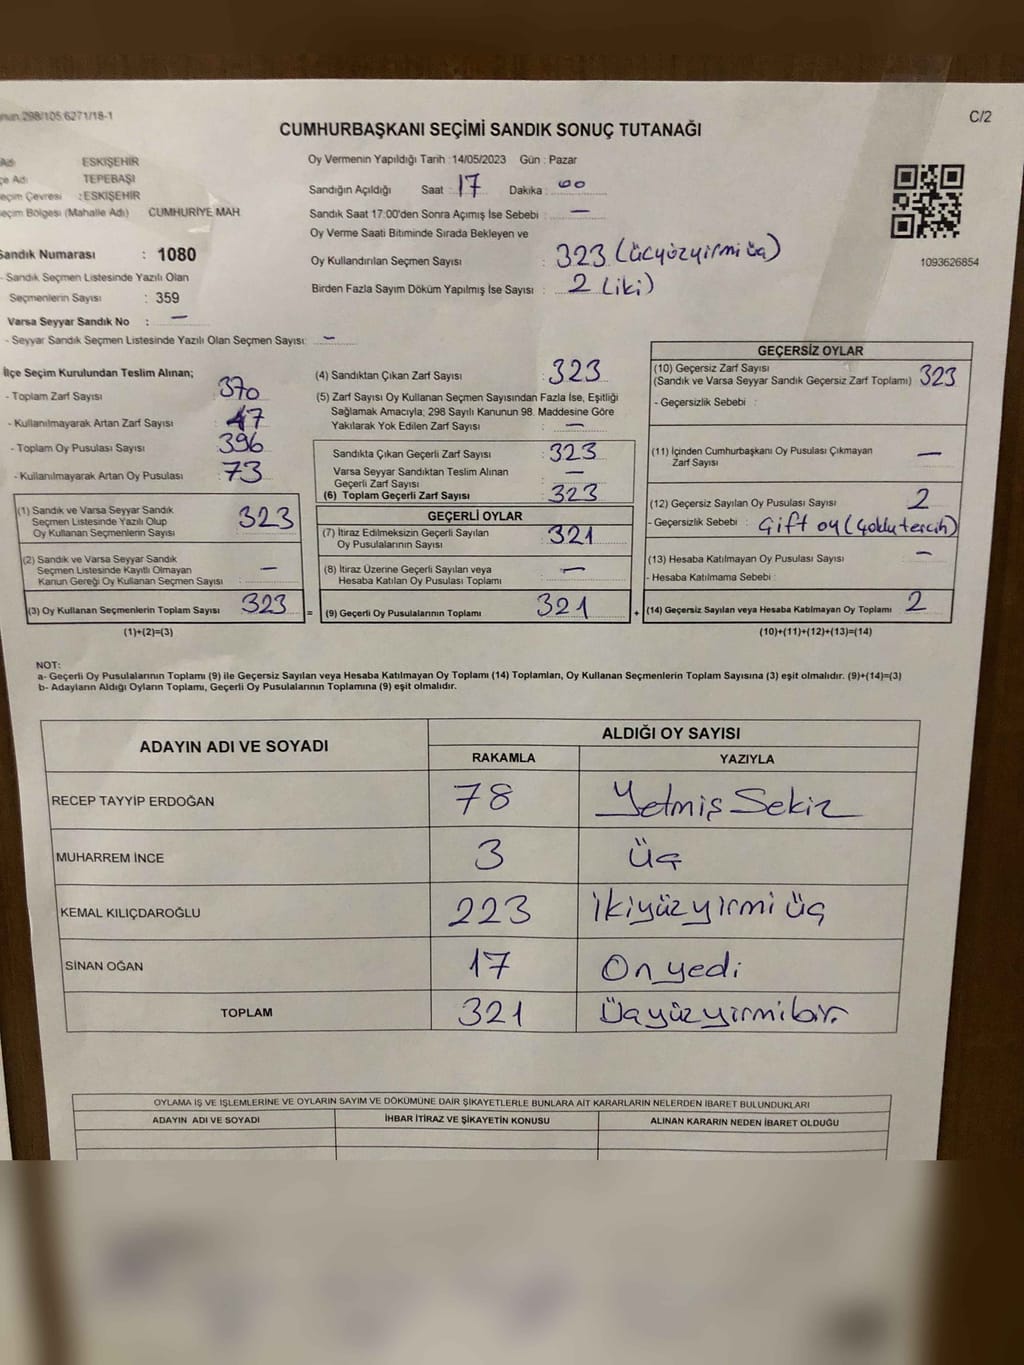 298/105.6271/18-1
C/2
CUMHURBAŞKANI SEÇİMİ SANDIK SONUÇ TUTANAĞI
Adı ESKİŞEHİR
çe Adı TEPEBAŞI
eçim Çevresi : ESKİŞEHİR
eçim Bölgesi (Mahalle Adı) CUMHURİYE MAH
Sandık Numarası : 1080
- Sandık Seçmen Listesinde Yazılı Olan
Seçmenlerin Sayısı : 359
Varsa Seyyar Sandık No : —
- Seyyar Sandık Seçmen Listesinde Yazılı Olan Seçmen Sayısı: —
Oy Vermenin Yapıldığı Tarih : 14/05/2023 Gün : Pazar
Sandığın Açıldığı Saat : 17 Dakika : 00
Sandık Saat 17:00'den Sonra Açımış İse Sebebi : —
Oy Verme Saati Bitiminde Sırada Bekleyen ve
Oy Kullandırılan Seçmen Sayısı : 323 (üçyüzyirmi üç)
Birden Fazla Sayım Döküm Yapılmış İse Sayısı : 2 (iki)
1093626854
İlçe Seçim Kurulundan Teslim Alınan;
- Toplam Zarf Sayısı : 370
- Kullanılmayarak Artan Zarf Sayısı : 47
- Toplam Oy Pusulası Sayısı : 396
- Kullanılmayarak Artan Oy Pusulası : 73
(1) Sandık ve Varsa Seyyar Sandık
Seçmen Listesinde Yazılı Olup
Oy Kullanan Seçmenlerin Sayısı : 323
(2) Sandık ve Varsa Seyyar Sandık
Seçmen Listesinde Kayıtlı Olmayan
Kanun Gereği Oy Kullanan Seçmen Sayısı : —
(3) Oy Kullanan Seçmenlerin Toplam Sayısı : 323 =
(1)+(2)=(3)
(4) Sandıktan Çıkan Zarf Sayısı : 323
(5) Zarf Sayısı Oy Kullanan Seçmen Sayısından Fazla İse, Eşitliği
Sağlamak Amacıyla, 298 Sayılı Kanunun 98. Maddesine Göre
Yakılarak Yok Edilen Zarf Sayısı : —
Sandıkta Çıkan Geçerli Zarf Sayısı : 323
Varsa Seyyar Sandıktan Teslim Alınan
Geçerli Zarf Sayısı : —
(6) Toplam Geçerli Zarf Sayısı : 323
GEÇERLİ OYLAR
(7) İtiraz Edilmeksizin Geçerli Sayılan
Oy Pusulalarının Sayısı : 321
(8) İtiraz Üzerine Geçerli Sayılan veya
Hesaba Katılan Oy Pusulası Toplamı : —
(9) Geçerli Oy Pusulalarının Toplamı 321 +
GEÇERSİZ OYLAR
(10) Geçersiz Zarf Sayısı
(Sandık ve Varsa Seyyar Sandık Geçersiz Zarf Toplamı) : 323
- Geçersizlik Sebebi :
(11) İçinden Cumhurbaşkanı Oy Pusulası Çıkmayan
Zarf Sayısı —
(12) Geçersiz Sayılan Oy Pusulası Sayısı 2
- Geçersizlik Sebebi : Çift oy (Çoklu tercih)
(13) Hesaba Katılmayan Oy Pusulası Sayısı —
- Hesaba Katılmama Sebebi :
(14) Geçersiz Sayılan veya Hesaba Katılmayan Oy Toplamı 2
(10)+(11)+(12)+(13)=(14)
NOT:
a- Geçerli Oy Pusulalarının Toplamı (9) ile Geçersiz Sayılan veya Hesaba Katılmayan Oy Toplamı (14) Toplamları, Oy Kullanan Seçmenlerin Toplam Sayısına (3) eşit olmalıdır. (9)+(14)=(3)
b- Adayların Aldığı Oyların Toplamı, Geçerli Oy Pusulalarının Toplamına (9) eşit olmalıdır.
ADAYIN ADI VE SOYADI ALDIĞI OY SAYISI
RAKAMLA YAZIYLA
RECEP TAYYİP ERDOĞAN 78 Yetmiş Sekiz
MUHARREM İNCE 3 üç
KEMAL KILIÇDAROĞLU 223 ikiyüzyirmi üç
SİNAN OĞAN 17 On yedi
TOPLAM 321 Üçyüzyirmibir.
OYLAMA İŞ VE İŞLEMLERİNE VE OYLARIN SAYIM VE DÖKÜMÜNE DAİR ŞİKAYETLERLE BUNLARA AİT KARARLARIN NELERDEN İBARET BULUNDUKLARI
ADAYIN ADI VE SOYADI İHBAR İTİRAZ VE ŞİKAYETİN KONUSU ALINAN KARARIN NEDEN İBARET OLDUĞU